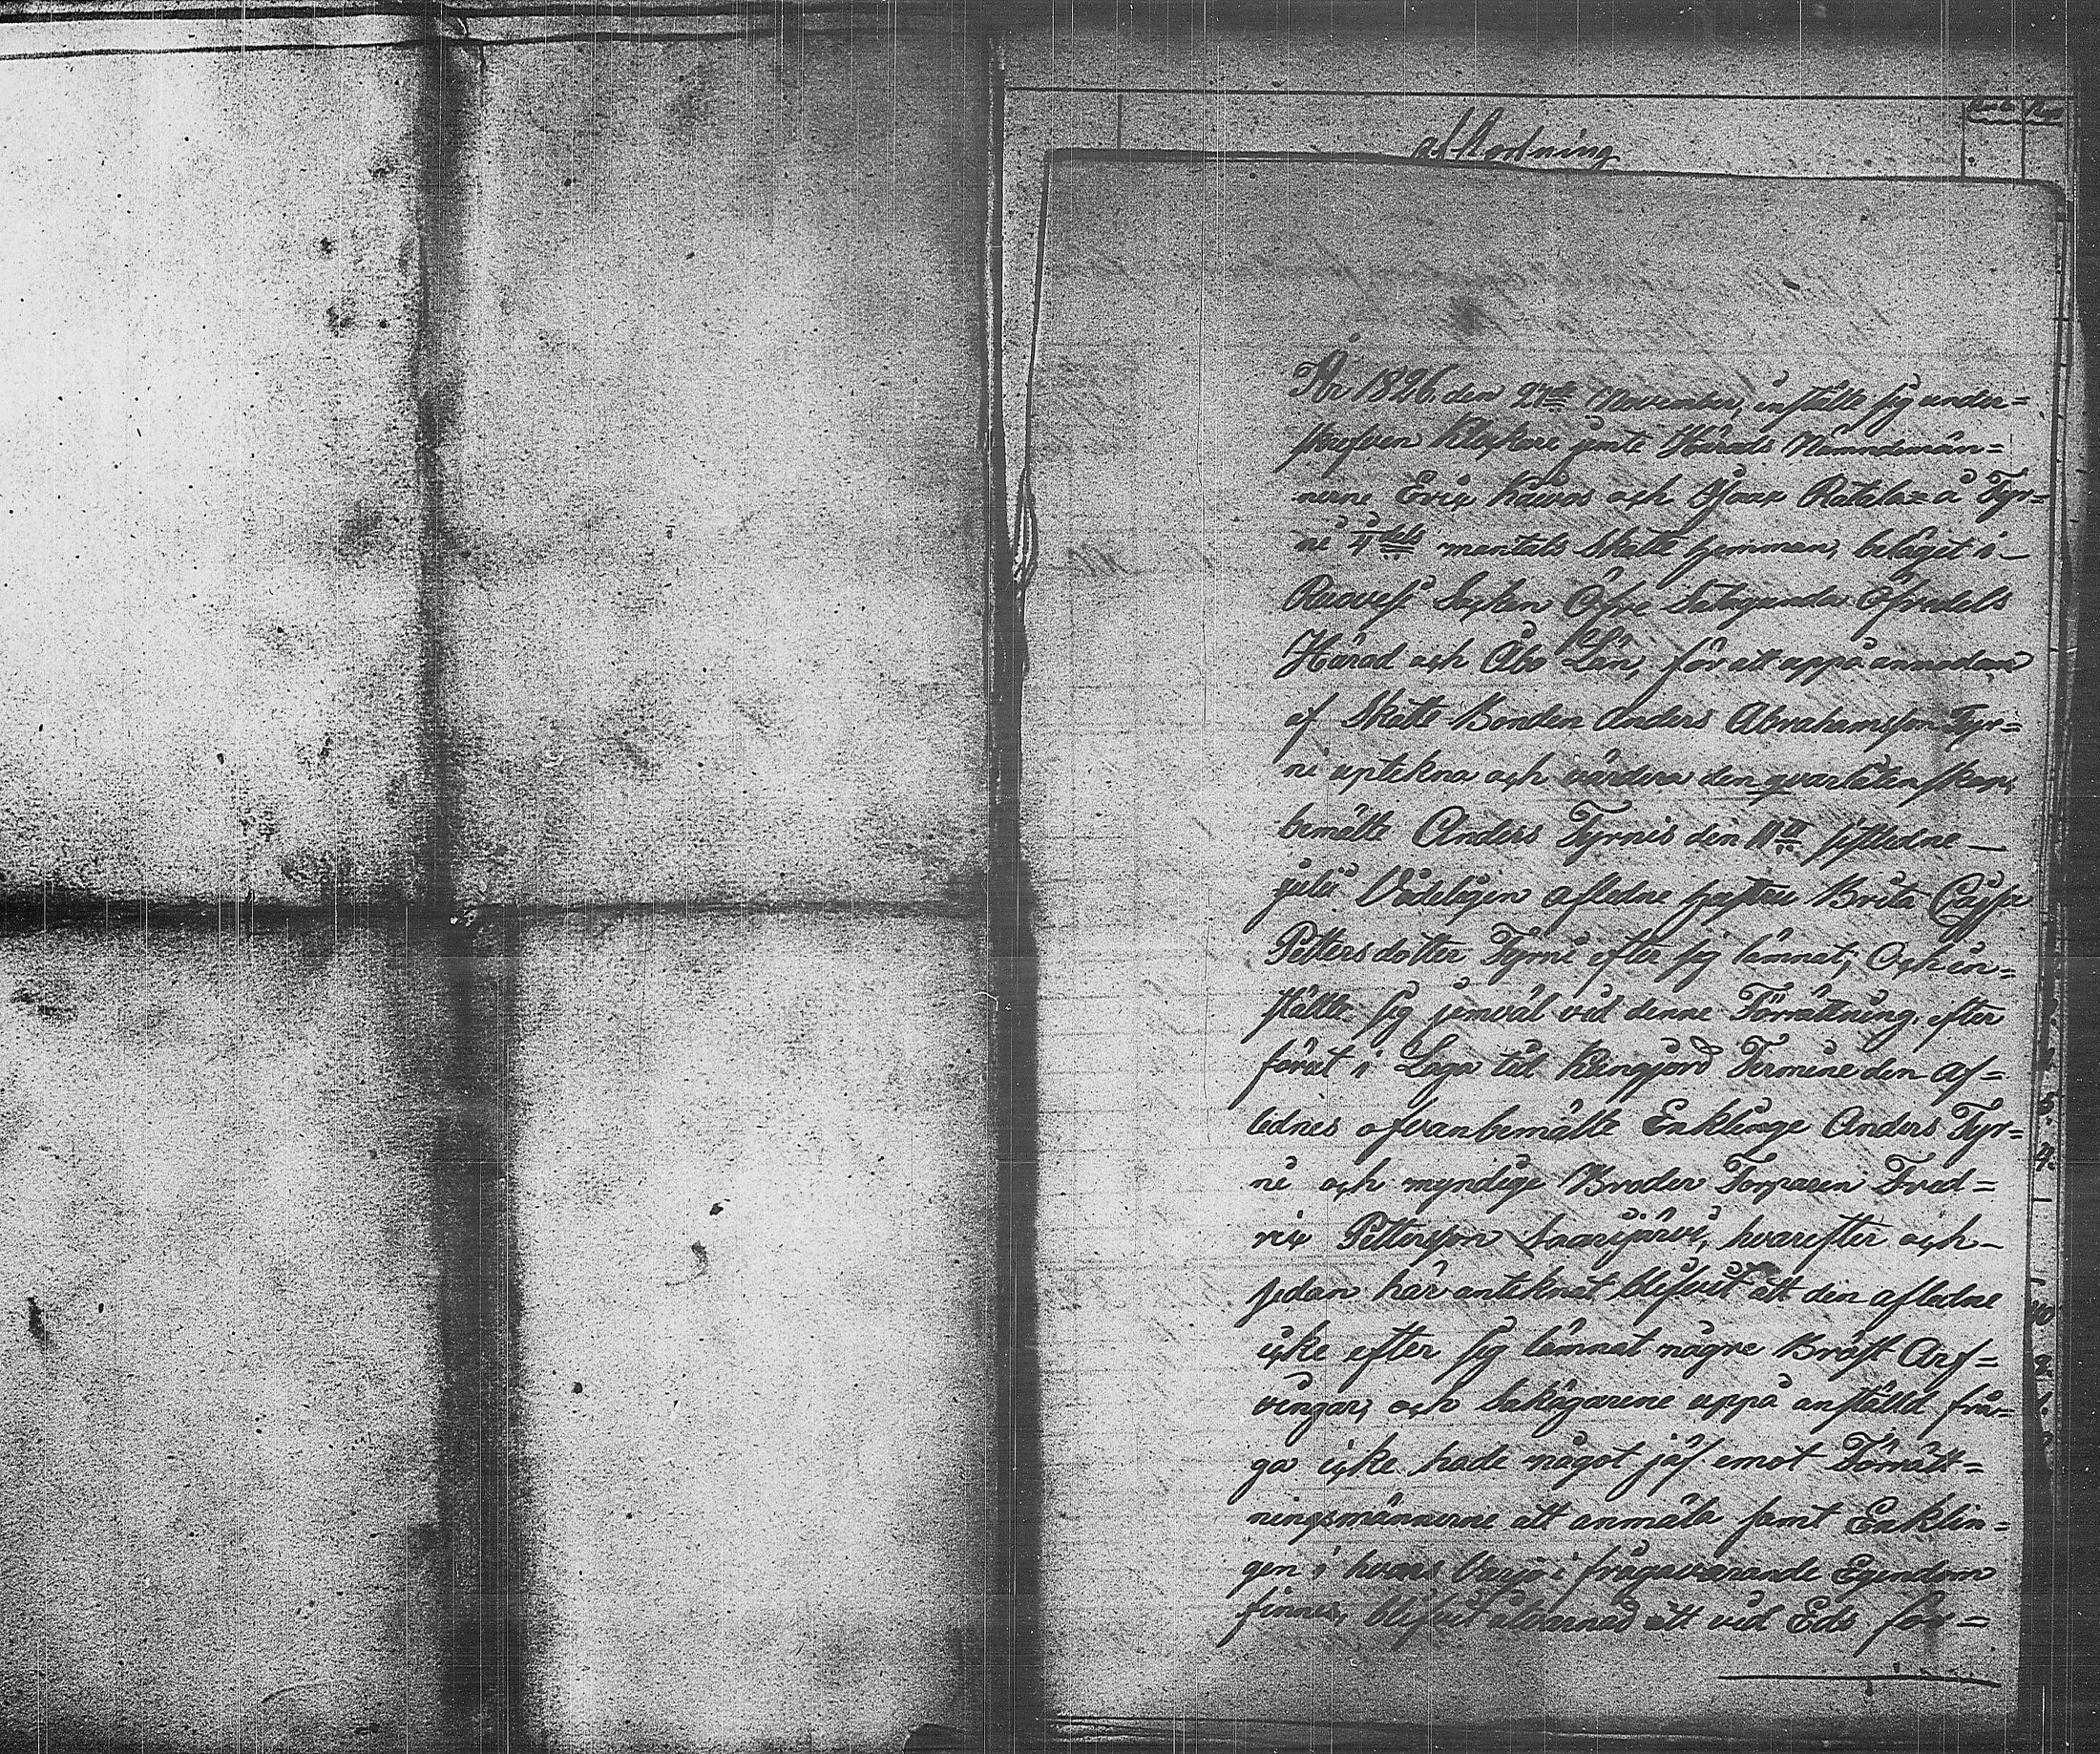 afkortning
År 1826, den 27de November, instälte sig under=
skrefven Klockare jemte Härads Nämndemän=
nerne Eric Kauros och Isaac Ratsla å Tyr=
ni mantals Skatte hemman, belägit i
Ruovesi Sockn Öfre Satagunda Öfredels
Härad och Åbo Län, för att uppå anmodan
af Skatte Bonden Anders Abrahamsson Tyr=
ni uptekna och värdera den qvarlåtenskap,
bemälte Anders Tyrnis den 11te sistledne
julii Vådeligen afledne hustru Brita Cajsa
Pettersdotter Tyrni efter sig lämnat; Och in=
stälte sig jemväl vid denne Förrättning, efter
förut i Laga tid kringjord Termine den af=
lednes ofvanbemälte Enklinge Anders Tyr=
ni och myndige Broder Torparen Fred=
ric Pettersson Saarijärvi, hvarefter och
sedan här anteknat blifvit att den afledne
icke efter sig lämnat några Bröst Arf=
vingar, och Sakägarene uppå anstäld frå=
ga icke hade något jäf emot Förrätt=
ningsmännerne att anmäla samt Enklin=
gen i hvars Värjo i frågavarande Egendom
finnes, blifvit åtvarnad att vid Eds för=